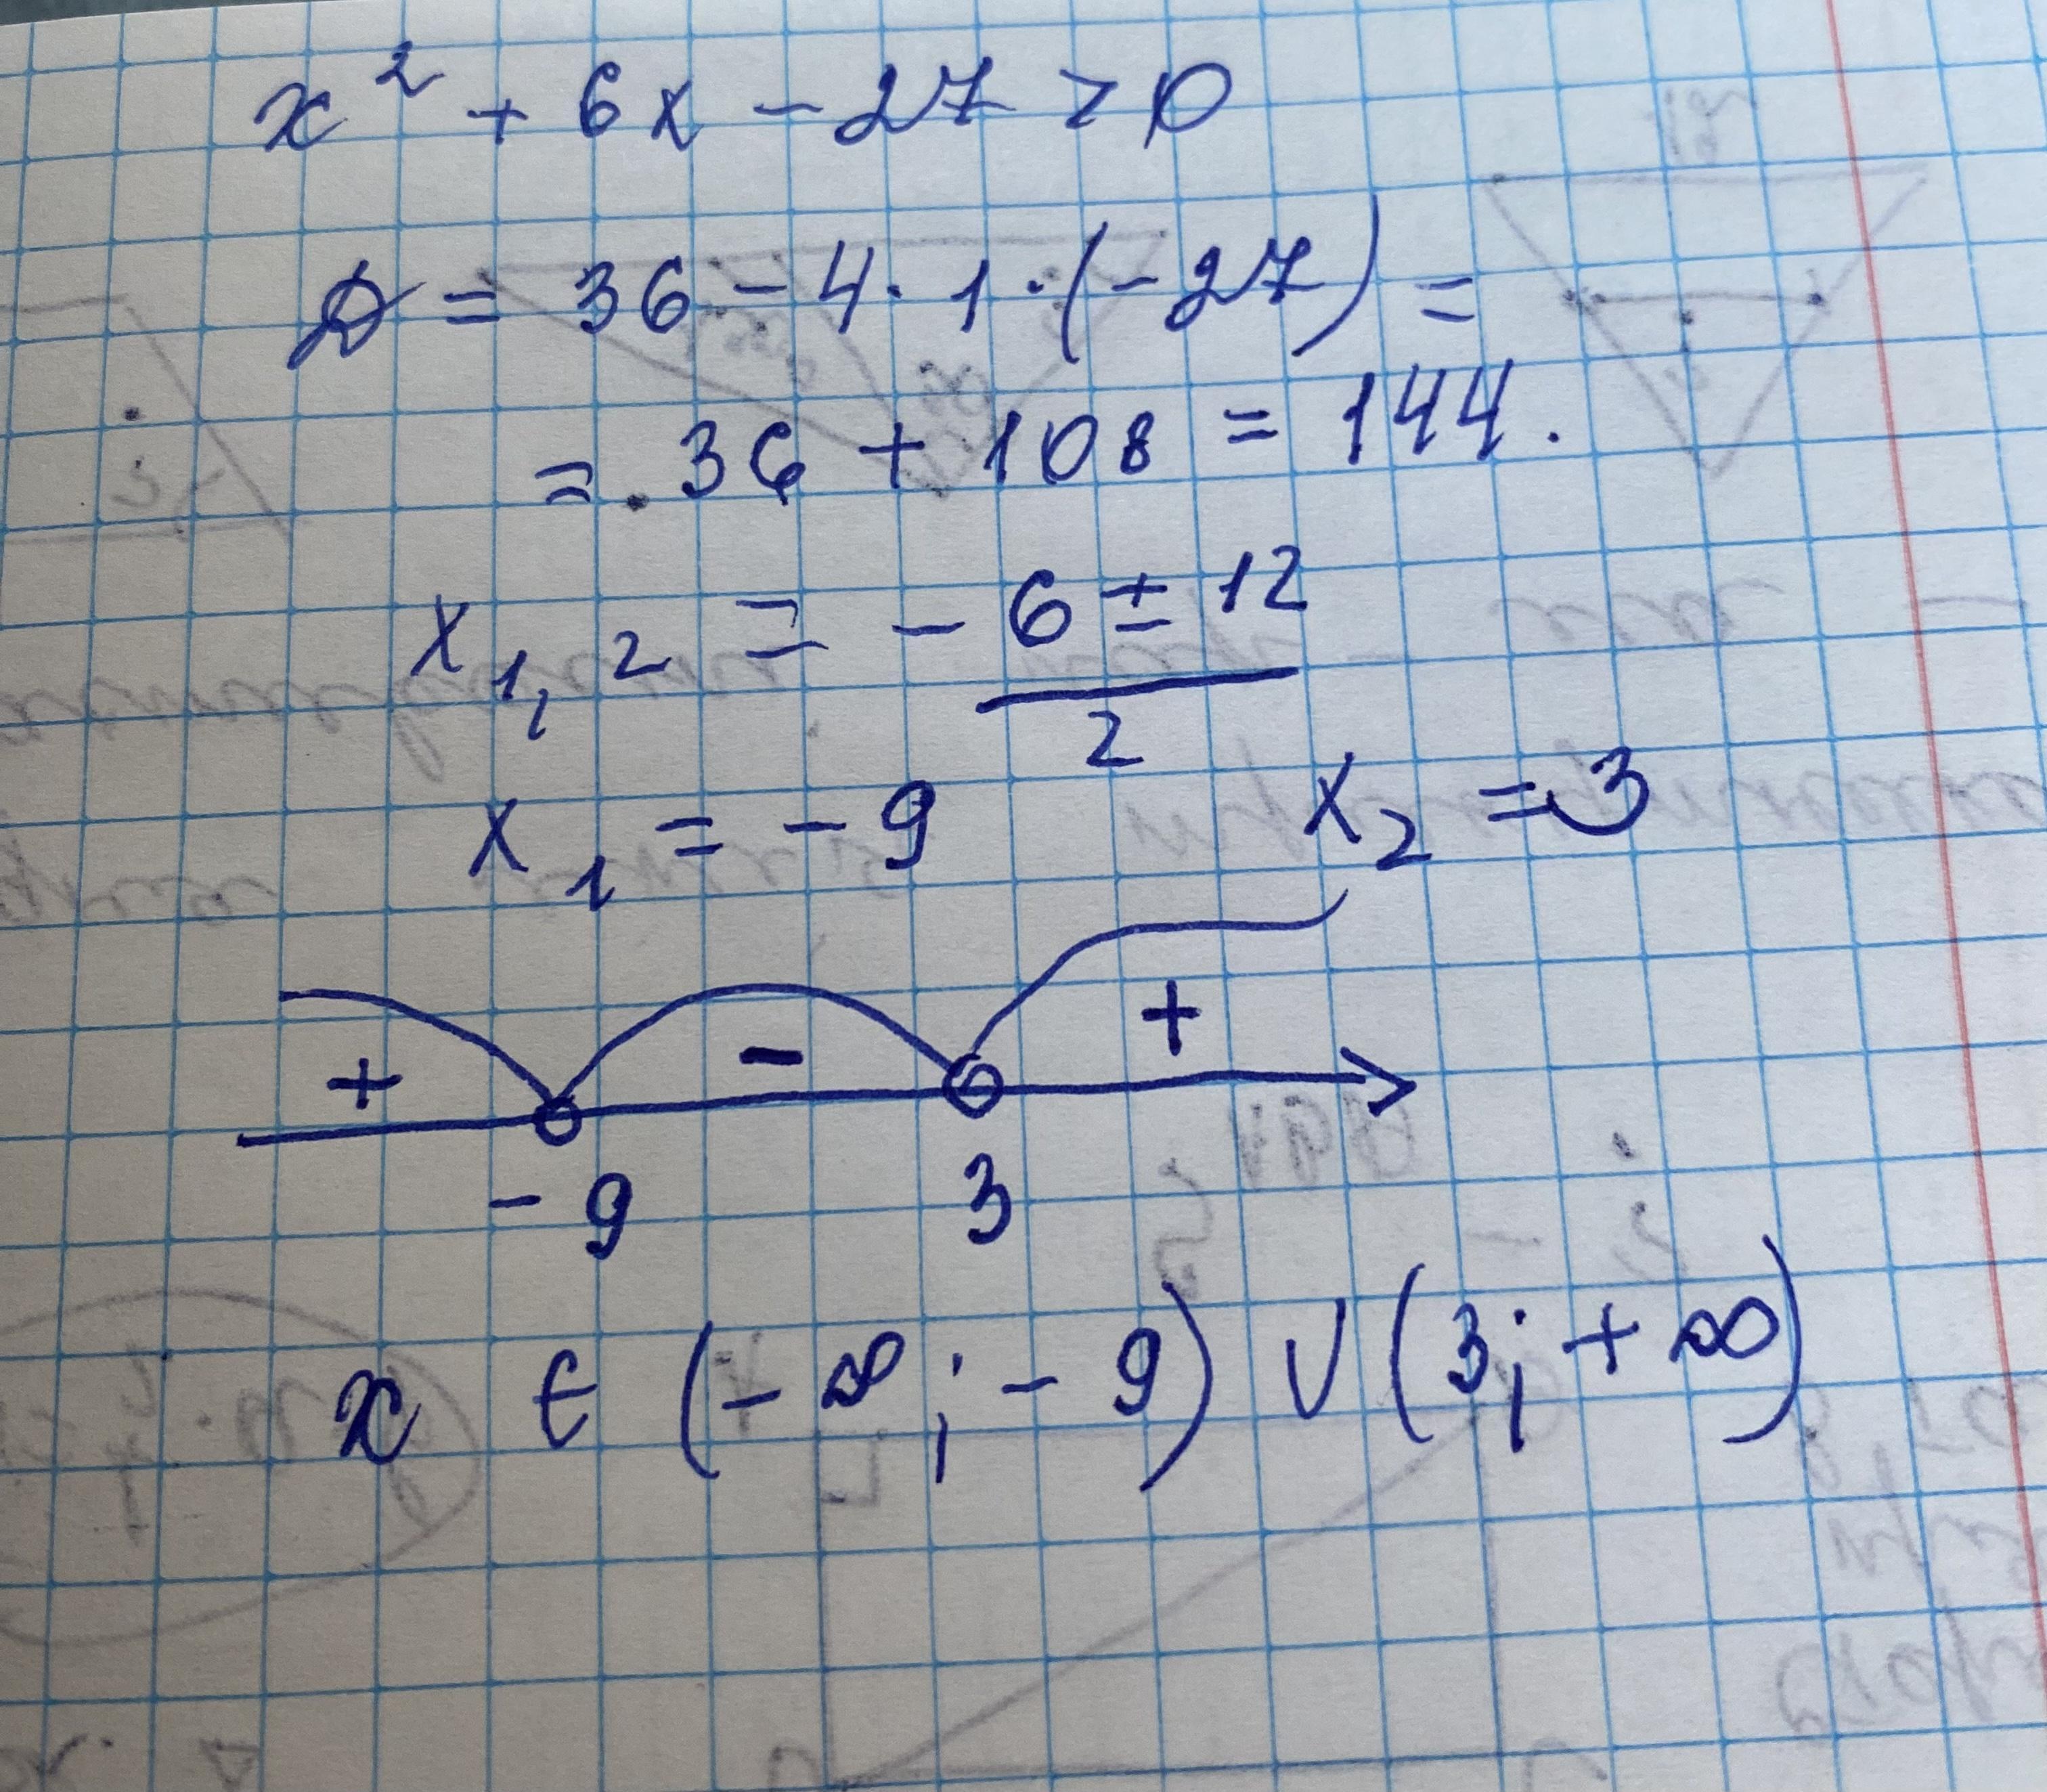 x² + 6x - 27 > 0
D = 36 - 4 · 1 · (-27) =
= 36 + 108 = 144.
x₁,₂ = (-6 ± 12)/2
x₁ = -9 x₂ = 3
+ - +
-9 3
x ∈ (-∞; -9) ∪ (3; +∞)